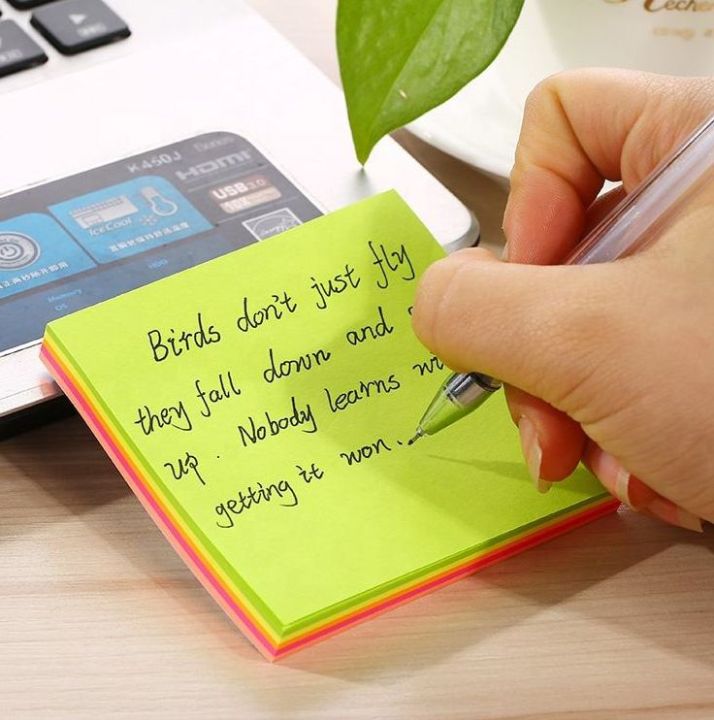 Techen
K450J
HDMI
USB3.0
IceCool
Memory
HDD
OS
Birds don't just fly
they fall down and
up. Nobody learns wi
getting it won.